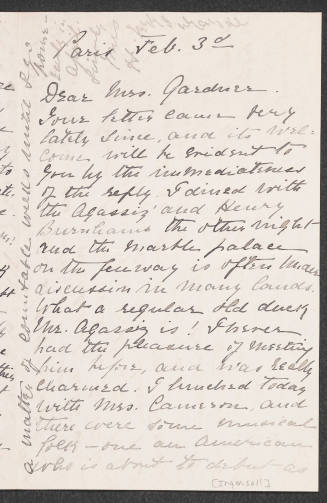 Paris Feb. 3d
Dear Mrs. Gardner.
Your letter came very
lately since, and its wel-
come will be evident to
you by the immediateness
of the reply. I dined with
the Agassiz' and Henry
Burnhams the other night
and the marble palace
on the fenway is often under
discussion in many lands.
What a regular old duck
Mr. Agassiz is! I never
had the pleasure of meeting
him before, and was really
charmed. I lunched today
with Mrs. Cameron, and
there were some musical
folk – one an American
who is about to debut as
[Ingersoll]
a matter of
weeks until I go
home-